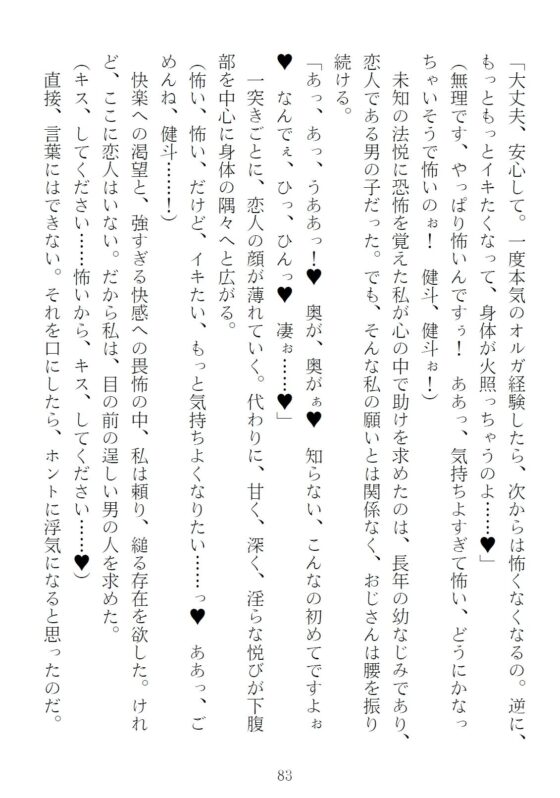 「大丈夫、安心して。一度本気のオルガ経験したら、次からは怖くなくなるの。逆に、
もっともっとイキたくなって、身体が火照っちゃうのよ……♥」
(無理です、やっぱり怖いんですぅ！　ああっ、気持ちよすぎて怖い、どうにかなっ
ちゃいそうで怖いのぉ！　健斗、健斗ぉ！)
未知の法悦に恐怖を覚えた私が心の中で助けを求めたのは、長年の幼なじみであり、
恋人である男の子だった。でも、そんな私の願いとは関係なく、おじさんは腰を振り
続ける。
「あっ、あっ、うああっ！♥　奥が、奥がぁ♥　知らない、こんなの初めてですよぉ
♥　なんでぇ、ひっ、ひんっ♥　凄ぉ……♥」
一突きごとに、恋人の顔が薄れていく。代わりに、甘く、深く、淫らな悦びが下腹
部を中心に身体の隅々へと広がる。
(怖い、怖い、だけど、イキたい、もっと気持ちよくなりたい……っ♥　ああっ、ご
めんね、健斗……！)
快楽への渇望と、強すぎる快感への畏怖の中、私は頼り、縋る存在を欲した。けれ
ど、ここに恋人はいない。だから私は、目の前の逞しい男の人を求めた。
(キス、してください……怖いから、キス、してください……♥)
直接、言葉にはできない。それを口にしたら、ホントに浮気になると思ったのだ。
83